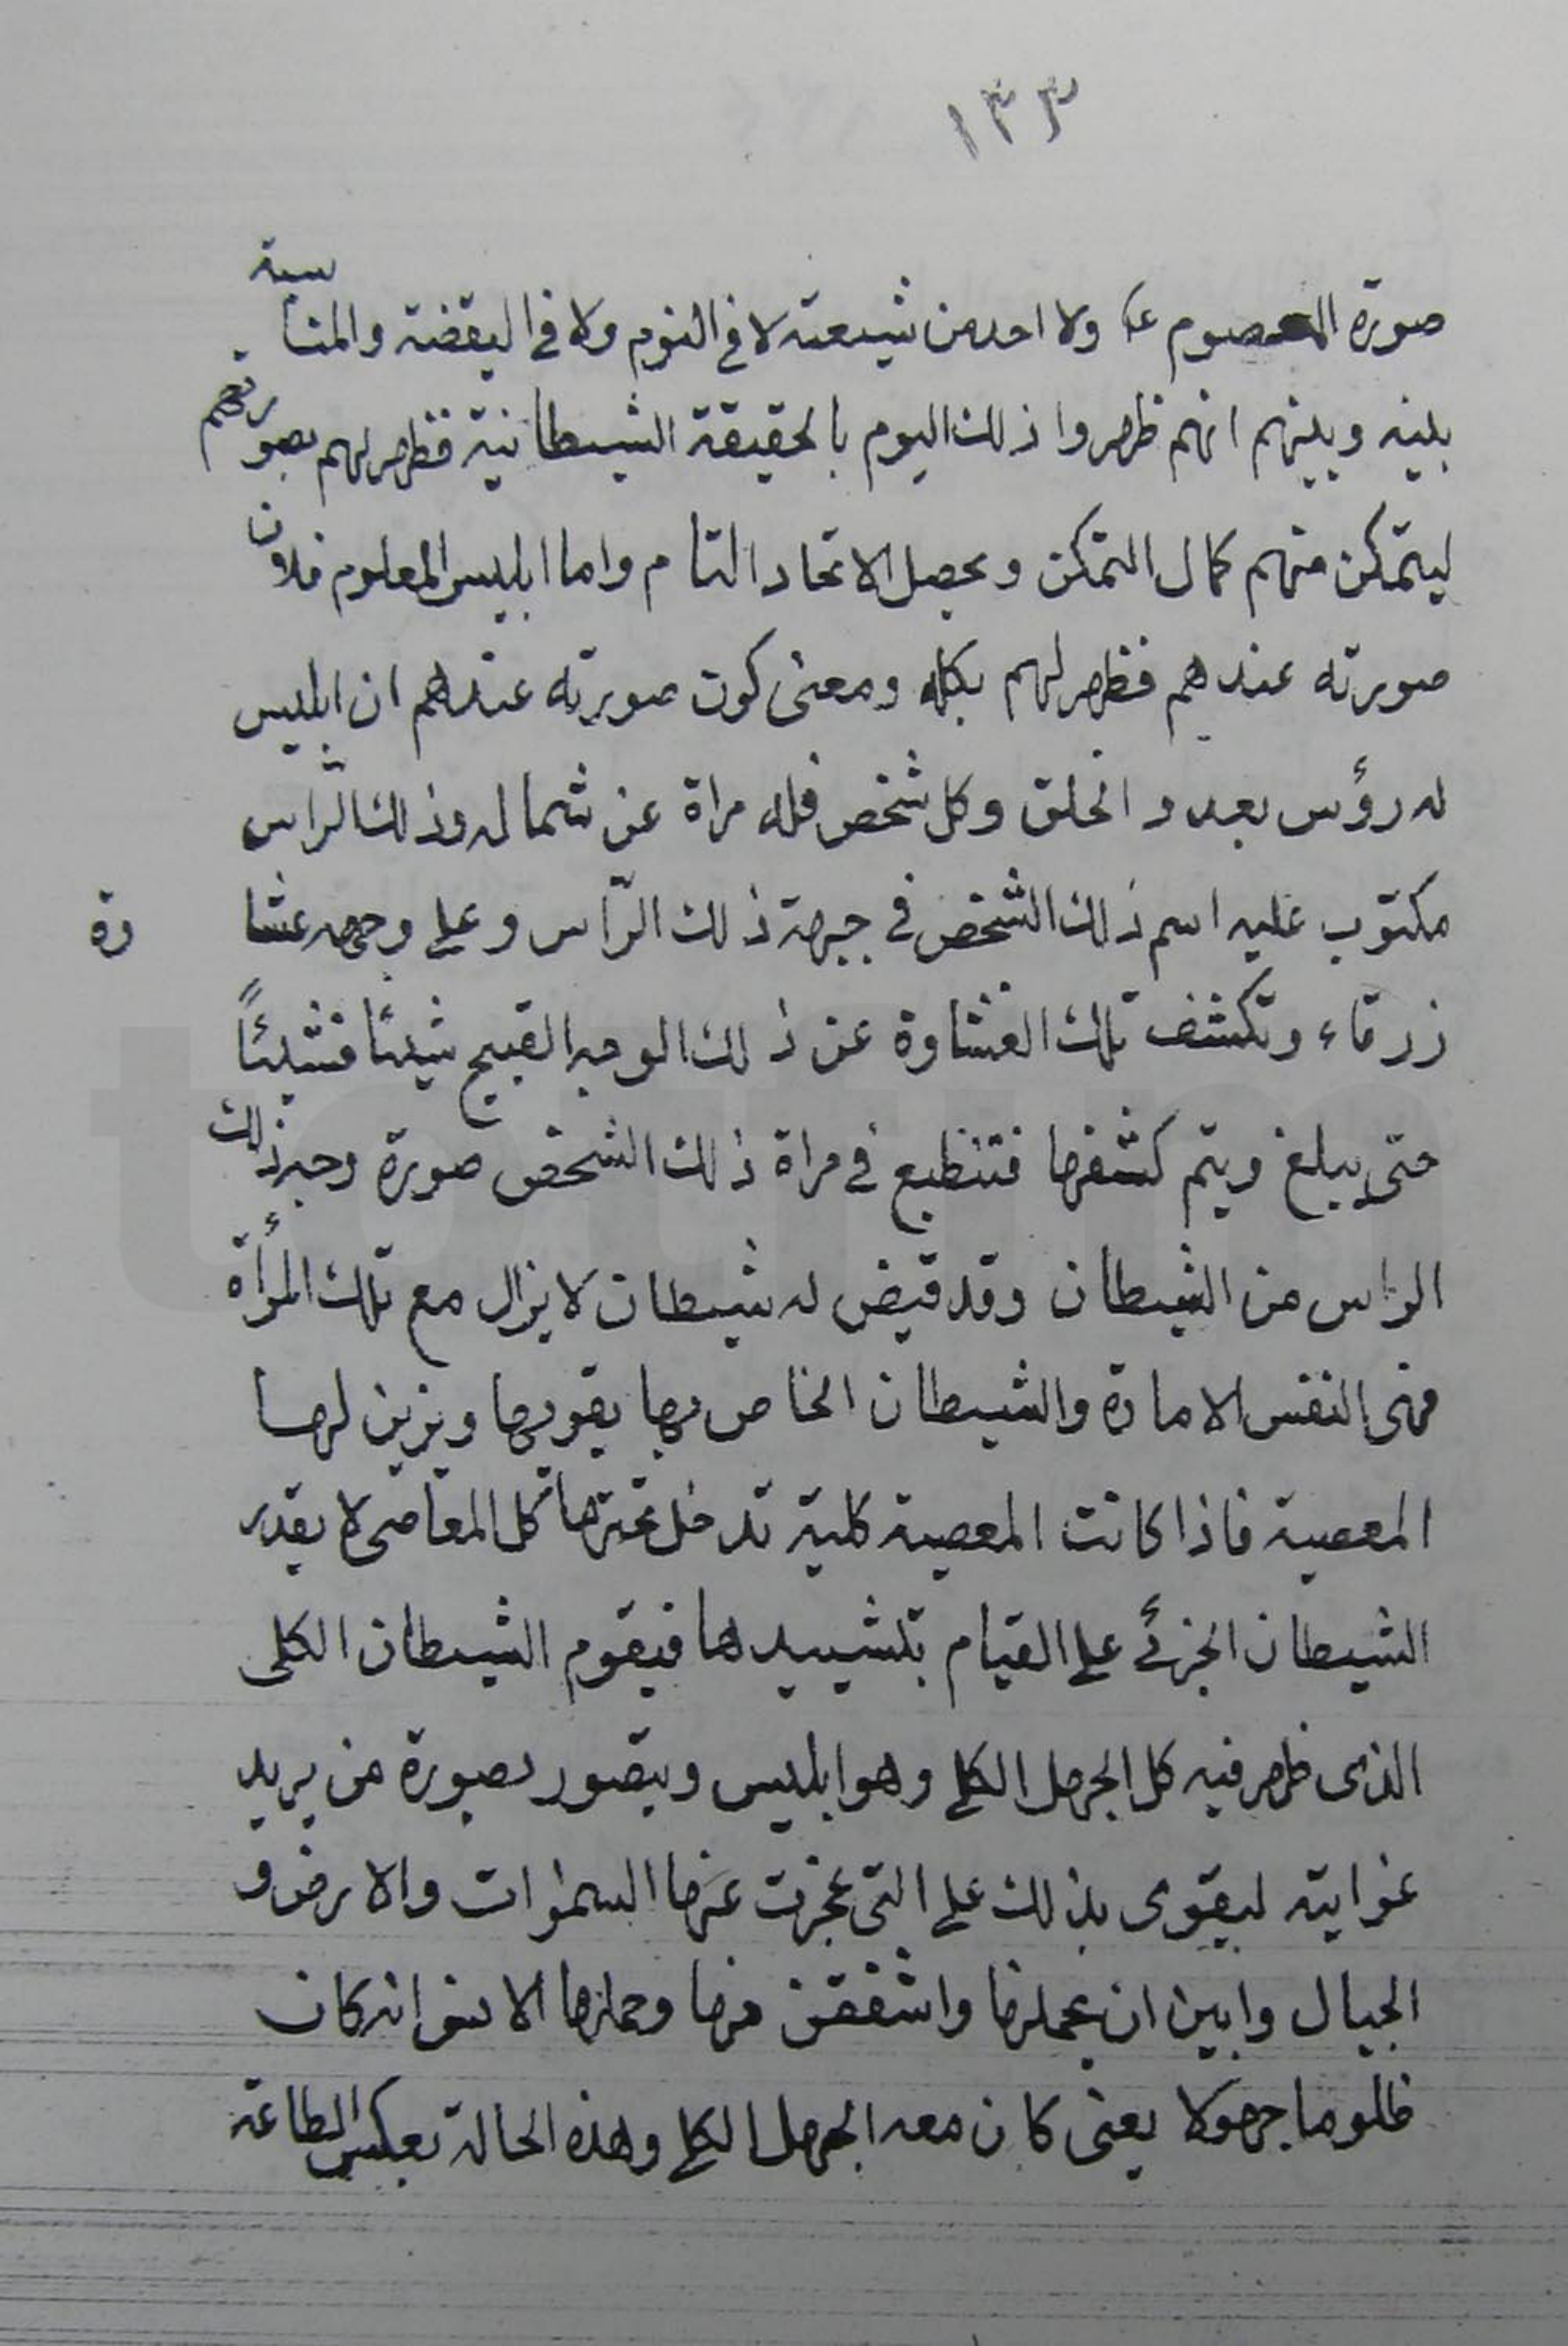 ١٣٣
صورة المعصوم ع ولا احد من شيعته لا في النوم ولا في اليقضة والمناسبة
بينه وبينهم انهم ظهروا ذلك اليوم بالحقيقة الشيطانية فظهر لهم بصورتهم
ليتمكن منهم كمال التمكن ويحصل الاتحاد التام واما ابليس المعلوم فلان
صورته عندهم فظهر لهم بكله ومعنى كون صورته عندهم ان ابليس
له رؤس بعدد الخلق وكل شخص فله مراة عن شماله وذلك الراس
مكتوب عليه اسم ذلك الشخص في جبهة ذلك الرّاس وعلى وجهه غشاوة
زرقاء وتكشف تلك الغشاوة عن ذلك الوجه القبيح شيئا فشيئاً
حتى يبلغ ويتم كشفها فتنطبع في مراة ذلك الشخص صورة وجه ذلك
الراس من الشيطان وقد قيض له شيطان لا يزال مع تلك المرأة
فهى النفس الامارة والشيطان الخاص بها يقويها ويزين لها
المعصية فاذا كانت المعصية كلية تدخل تحتها كل المعاصى لا يقدر
الشيطان الجزئے على القيام بتشييدها فيقوم الشيطان الكلى
الذى ظهر فيه كل الجهل الكلي وهو ابليس ويتصور بصورة من يريد
غوايته ليقوى بذلك على التى عجزت عنها السموات والارض و
الجبال وابين ان يحملنها واشفقن منها وحملها الانسٰ انه كان
ظلوما جهولا يعنى كان معه الجهل الكلي وهذه الحالة بعكس الطاعة